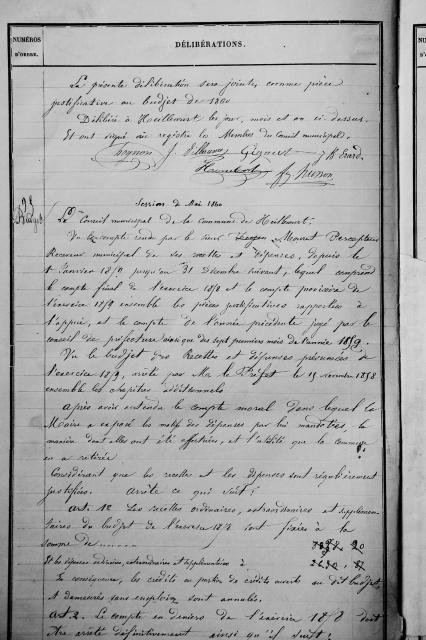 NUMÉROS
D'ORDRE.
DÉLIBÉRATIONS.
La présente délibération sera jointe, comme pièce
justificative au budget de 1860
Délibéré à Heillecourt les jour, mois et an ci-dessus.
Et ont signé au registre les Membres du Conseil municipal.
Session de Mai 1860
Le Conseil municipal de la commune de Heillecourt;
Vu le compte rendu par le sieur Mouret Percepteur
Receveur municipal de ses recettes et dépenses, depuis le
1er Janvier jusqu'au 31 Décembre suivant, lequel comprend
le compte final de l'exercice et le compte provisoire de
l'exercice 1859 ensemble les pièces justificatives rapportées à
l'appui, et le compte de l'année précédente jugé par le
conseil de préfecture ainsi que des sept premiers mois de l'année 1859.
Vu le budget des Recettes et dépenses présumées de
l'exercice, réglé par Mr le Préfet le 15 novembre 1858
ensemble les chapitres additionnels
Après avoir entendu le compte moral dans lequel le
Maire a exposé les motifs des dépenses par lui mandatées, la
manière dont elles ont été effectuées, et l'utilité que la commune
en a retirée.
Considérant que les recettes et les dépenses sont régulièrement
justifiées. arrête ce qui suit:
art. 1er Les recettes ordinaires, extraordinaires et supplémen-
taires du budget de l'exercice sont fixées à la
somme de 20
Et les dépenses ordinaires, extraordinaires et supplémentaires à
En conséquence, les crédits ou portion de crédits ouverts au dit budget,
et demeurés sans emploi sont annulés.
art 2. Le compte en deniers de l'exercice doit
être arrêté définitivement ainsi qu'il suit: